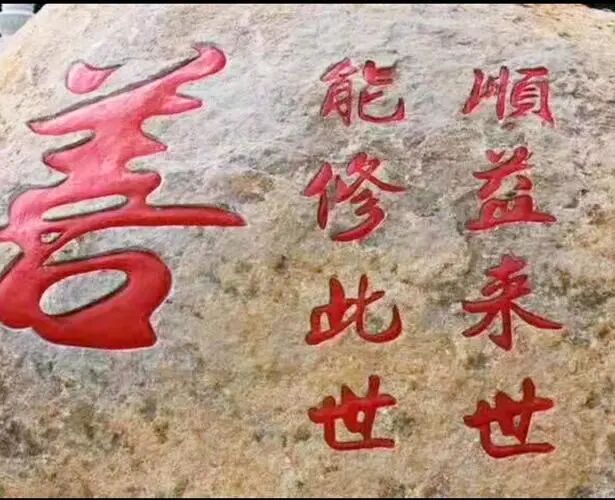 順益来世
能修此世
善